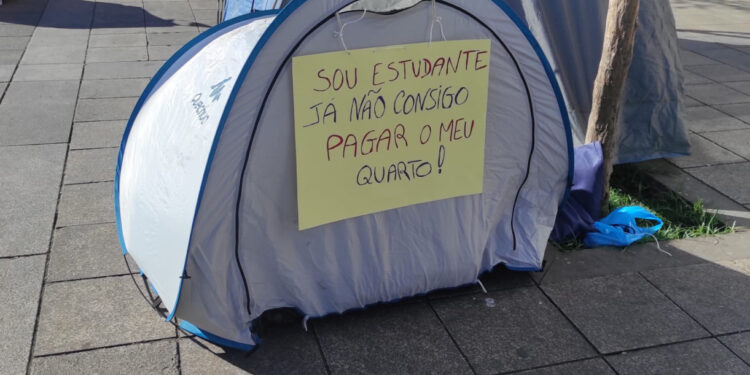 SOU ESTUDANTE
JÁ NÃO CONSIGO
PAGAR O MEU
QUARTO!
Quechua